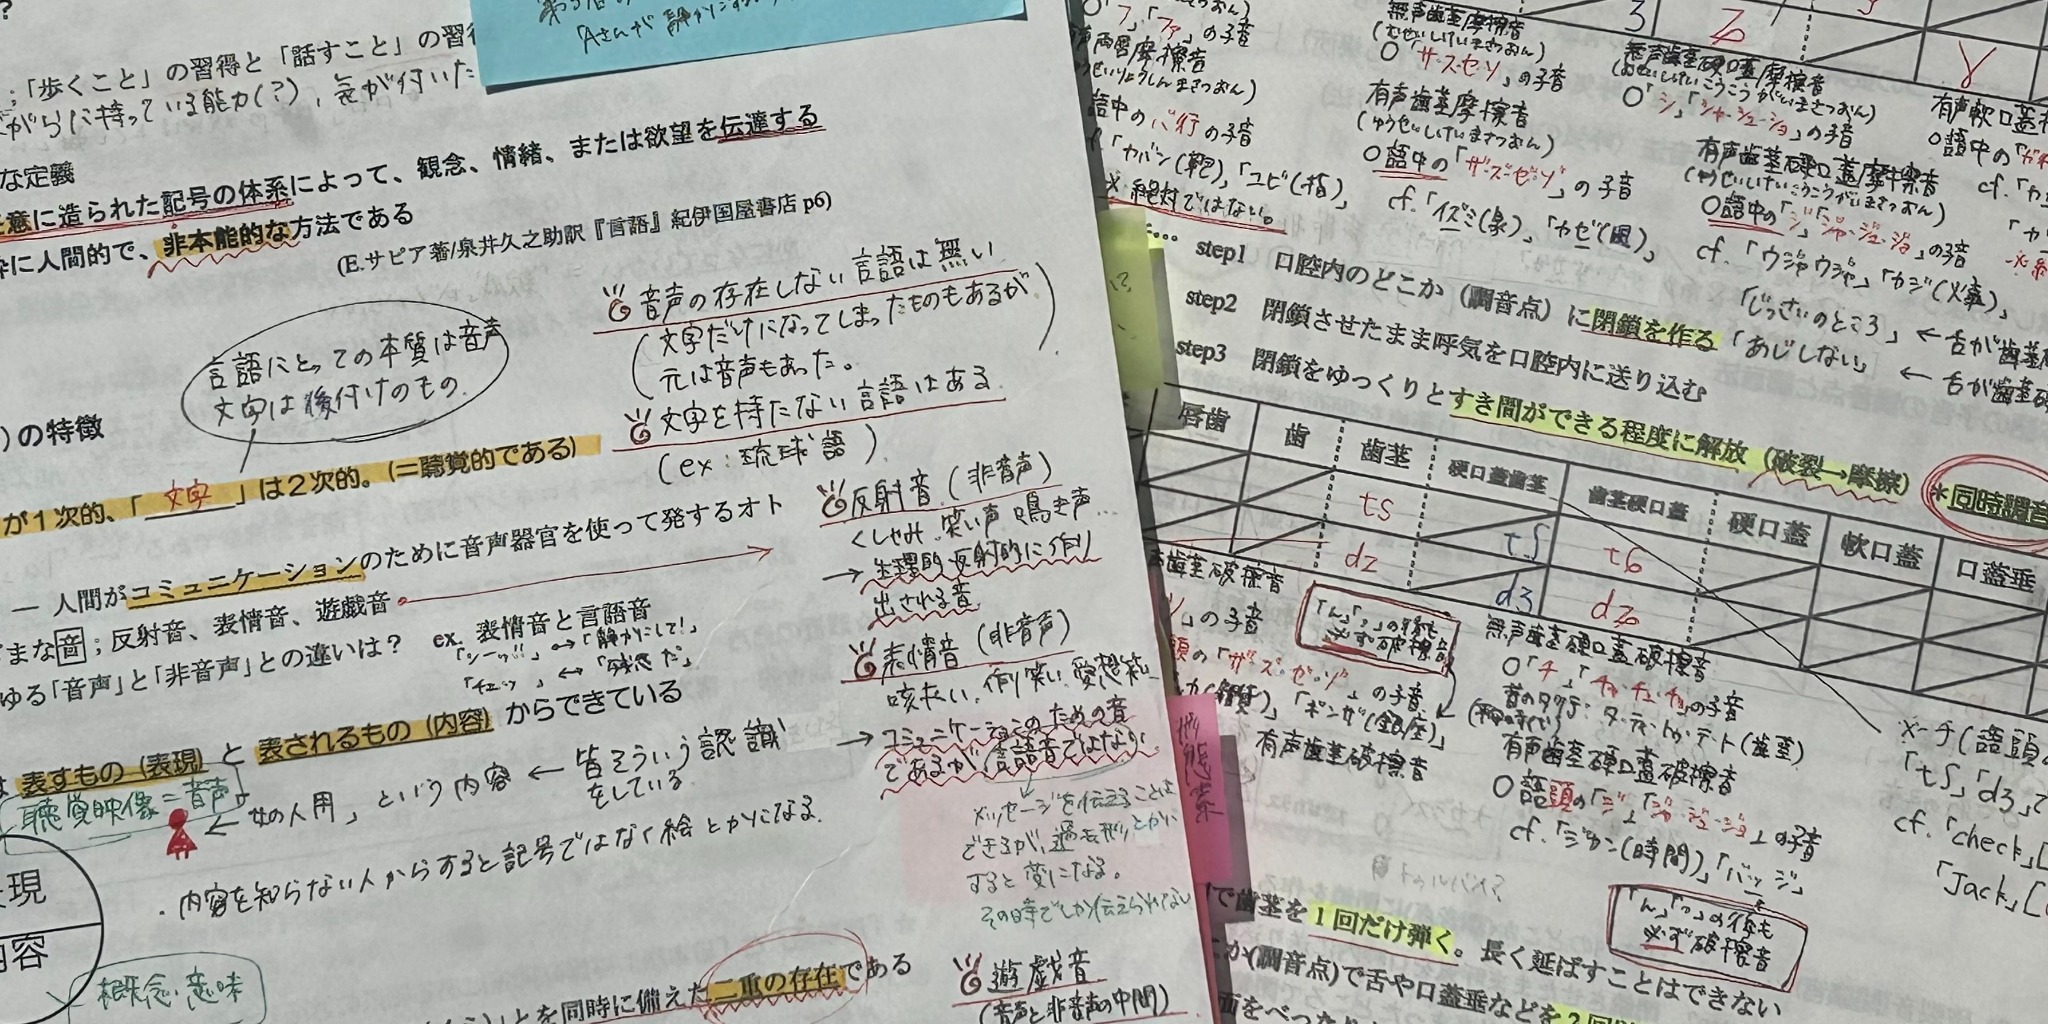 「Aさんが静かにする
；「歩くこと」の習得と「話すこと」の習
がらに持っている能力(?)、気が付いた
な定義
意に造られた記号の体系によって、観念、情緒、または欲望を伝達する
に人間的で、非本能的な方法である
(E.サピア著/泉井久之助訳『言語』紀伊国屋書店 p6)
言語にとっての本質は音声
文字は後付けのもの.
音声の存在しない言語は無い
(文字だけになってしまったものもあるが
元は音声もあった。)
文字を持たない言語はある
(ex：琉球語)
)の特徴
が1次的、「文字」は2次的。(＝聴覚的である)
― 人間がコミュニケーションのために音声器官を使って発するオト
まな音；反射音、表情音、遊戯音
ex. 表情音と言語音
「シーッ!!」↔「静かにして!」
「チェッ」↔「残念だ」
ゆる「音声」と「非音声」との違いは？
反射音(非音声)
くしゃみ、笑い声、鳴き声…
→生理的・反射的に
出される音
表情音(非音声)
咳払い、作り笑い、愛想
→コミュニケーションのための音
であるが、言語音ではない
メッセージを伝えることは
できるが、過去形とかに
すると変になる。
その時でしか伝えられない
は 表すもの（表現）と 表されるもの（内容）からできている
聴覚映像＝音声
←「女の人用」という内容 ← 皆そういう認識
をしている
・内容を知らない人からすると記号ではなく絵とかになる.
現
内容
概念・意味
とを同時に備えた二重の存在である
遊戯音
(音声と非音声の中間)
○「フ」「ファ」の子音
有声両唇摩擦音
(ゆうせいりょうしんまさつおん)
語中のバ行の子音
cf.「カバン(鞄)」「ユビ(指)」
※絶対ではない。
無声歯茎摩擦音
(むせいしけいまさつおん)
○「サ・ス・セ・ソ」の子音
有声歯茎摩擦音
(ゆうせいしけいまさつおん)
○語中の「ザ・ズ・ゼ・ゾ」の子音
cf.「イズミ(泉)」「カゼ(風)」
無声歯茎硬口蓋摩擦音
(むせいしけいこうこうがいまさつおん)
○「シ」「シャ・シュ・ショ」の子音
有声歯茎硬口蓋摩擦音
(ゆうせいしけいこうこうがいまさつおん)
○語中の「ジ」「ジャ・ジュ・ジョ」の子音
cf.「ウジャウジャ」「カジ(火事)」
ɣ
有声軟口蓋
○語中の「ガ
cf.「カ
step1 口腔内のどこか（調音点）に閉鎖を作る
step2 閉鎖させたまま呼気を口腔内に送り込む
step3 閉鎖をゆっくりとすき間ができる程度に解放（破裂→摩擦）
＊同時調音
「じっさいのところ」← 舌が歯茎
「あじしない」← 舌が歯茎
唇歯 歯 歯茎 硬口蓋歯茎 歯茎硬口蓋 硬口蓋 軟口蓋 口蓋垂
ts tʃ tɕ
dz dʒ dʑ
歯茎破擦音
」の子音
頭の「ザ・ズ・ゼ・ゾ」の子音
「ギンザ(銀座)」
有声歯茎破擦音
「ん」「っ」の後も
必ず破擦音
無声歯茎硬口蓋破擦音
○「チ」「チャ・チュ・チョ」の子音
有声歯茎硬口蓋破擦音
○語頭の「ジ」「ジャ・ジュ・ジョ」の子音
cf.「ジカン(時間)」「バッジ」
「ん」「っ」の後も
必ず破擦音
※チ(語頭の
「tʃ」「dʒ」て
cf.「check」[
「Jack」[
で歯茎を1回だけ弾く。長く延ばすことはできない
か(調音点)で舌や口蓋垂などを2回